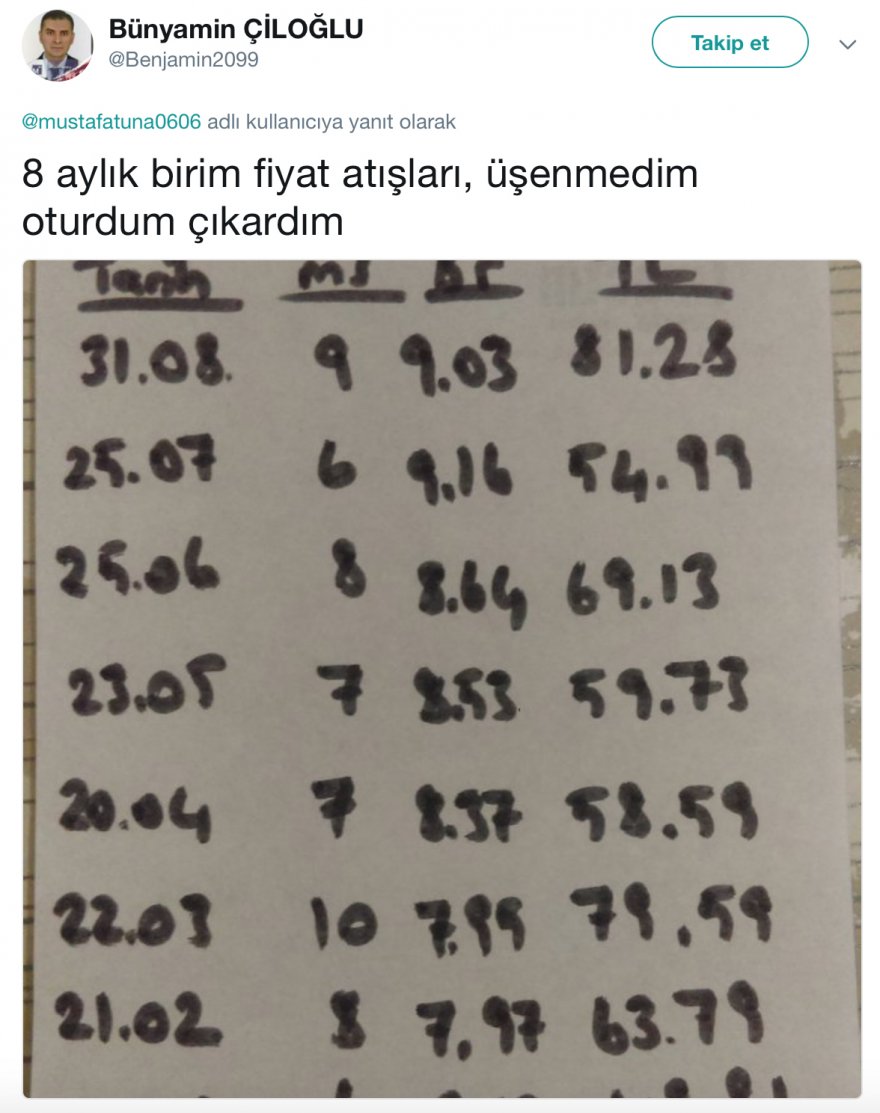 Bünyamin ÇİLOĞLU
@Benjamin2099
Takip et
@mustafatuna0606 adlı kullanıcıya yanıt olarak
8 aylık birim fiyat atışları, üşenmedim
oturdum çıkardım
Tarih M3 BF TL
31.08. 9 9.03 81.28
25.07 6 9.16 54.99
25.06 8 8.64 69.13
23.05 7 8.53 59.73
20.04 7 8.37 58.59
22.03 10 7.95 79.59
21.02 8 7.97 63.79